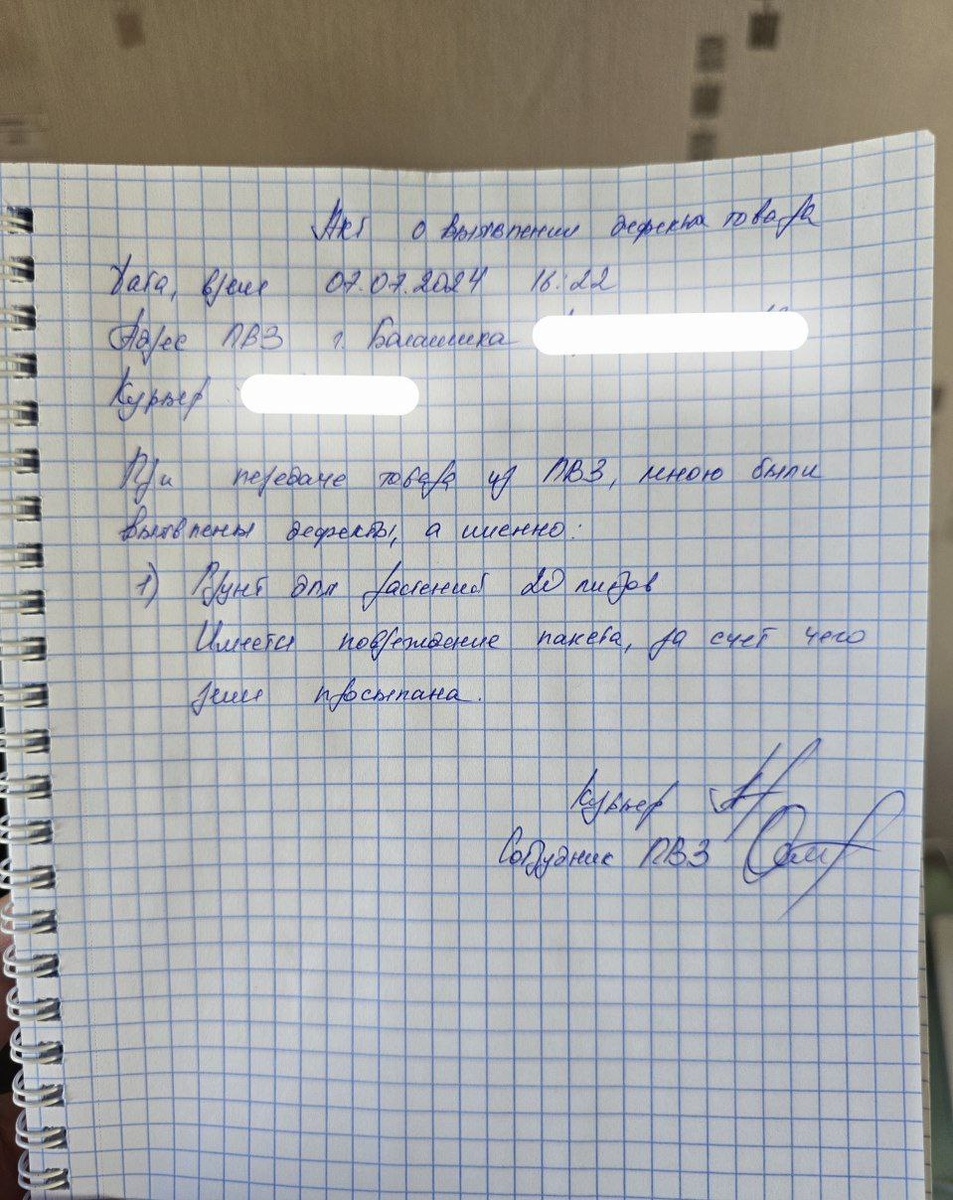 Акт о выявлении дефекта товара
Дата, время 07.07.2024 16:22
Адрес ПВЗ г. Балашиха
Курьер
При передаче товара из ПВЗ, мною были
выявлены дефекты, а именно:
1) Грунт для растений 20 литров
Имеется повреждение пакета, за счет чего
земля просыпана.
Курьер
Сотрудник ПВЗ